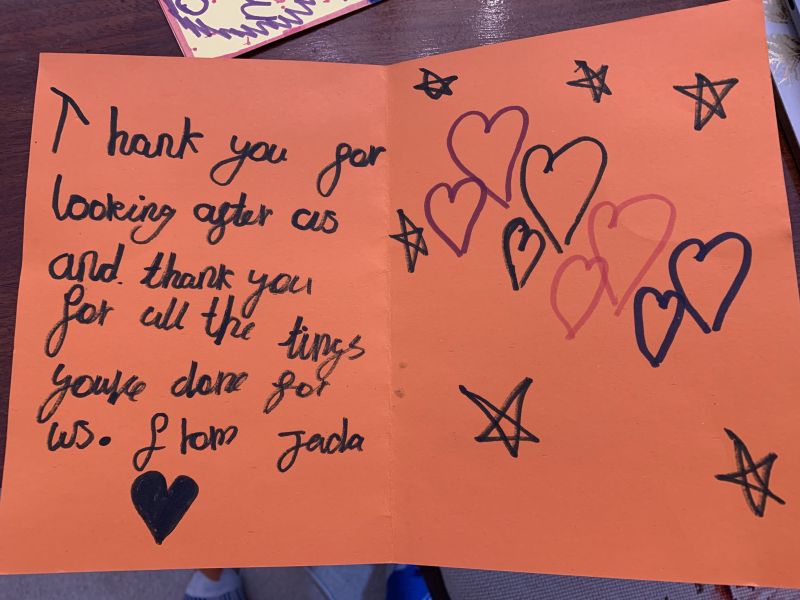 Thank you for
looking after us
and. thank you
for all the tings
youve done for
us. from Jada